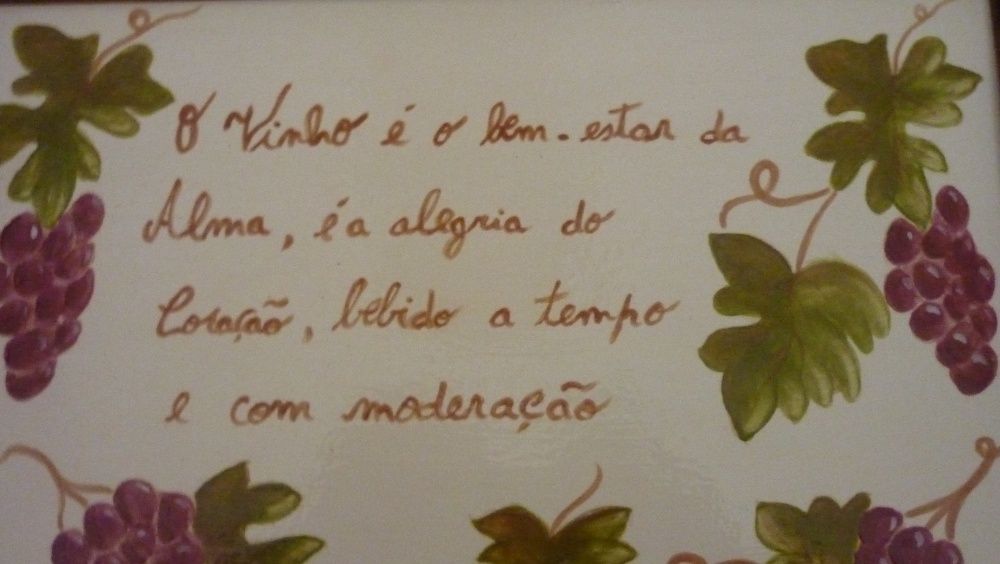 O Vinho é o bem-estar da
Alma, é a alegria do
Coração, bebido a tempo
e com moderação